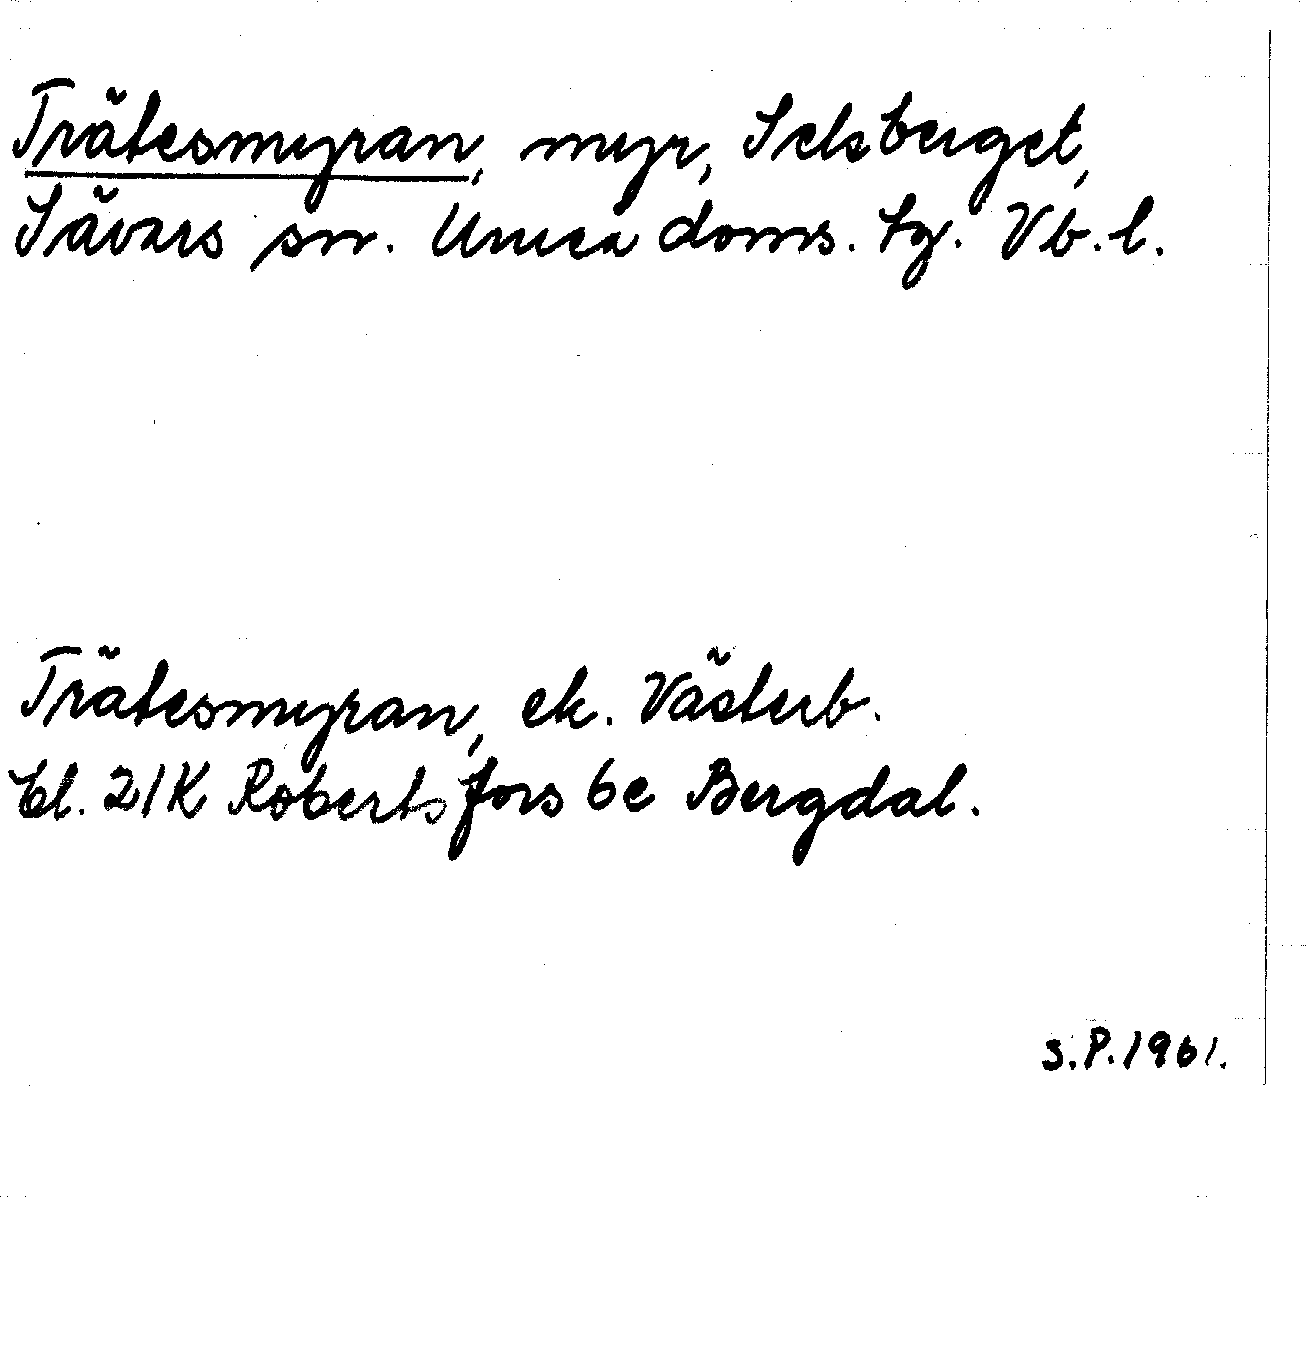 Trätesmyran, myr, Selsberget,
Sävars sn. Umeå doms. tg. Vb.l.
Trätesmyran, ek. Västerb.
bl. 21K Robertsfors 6e Bergdal.
S.P.1961.